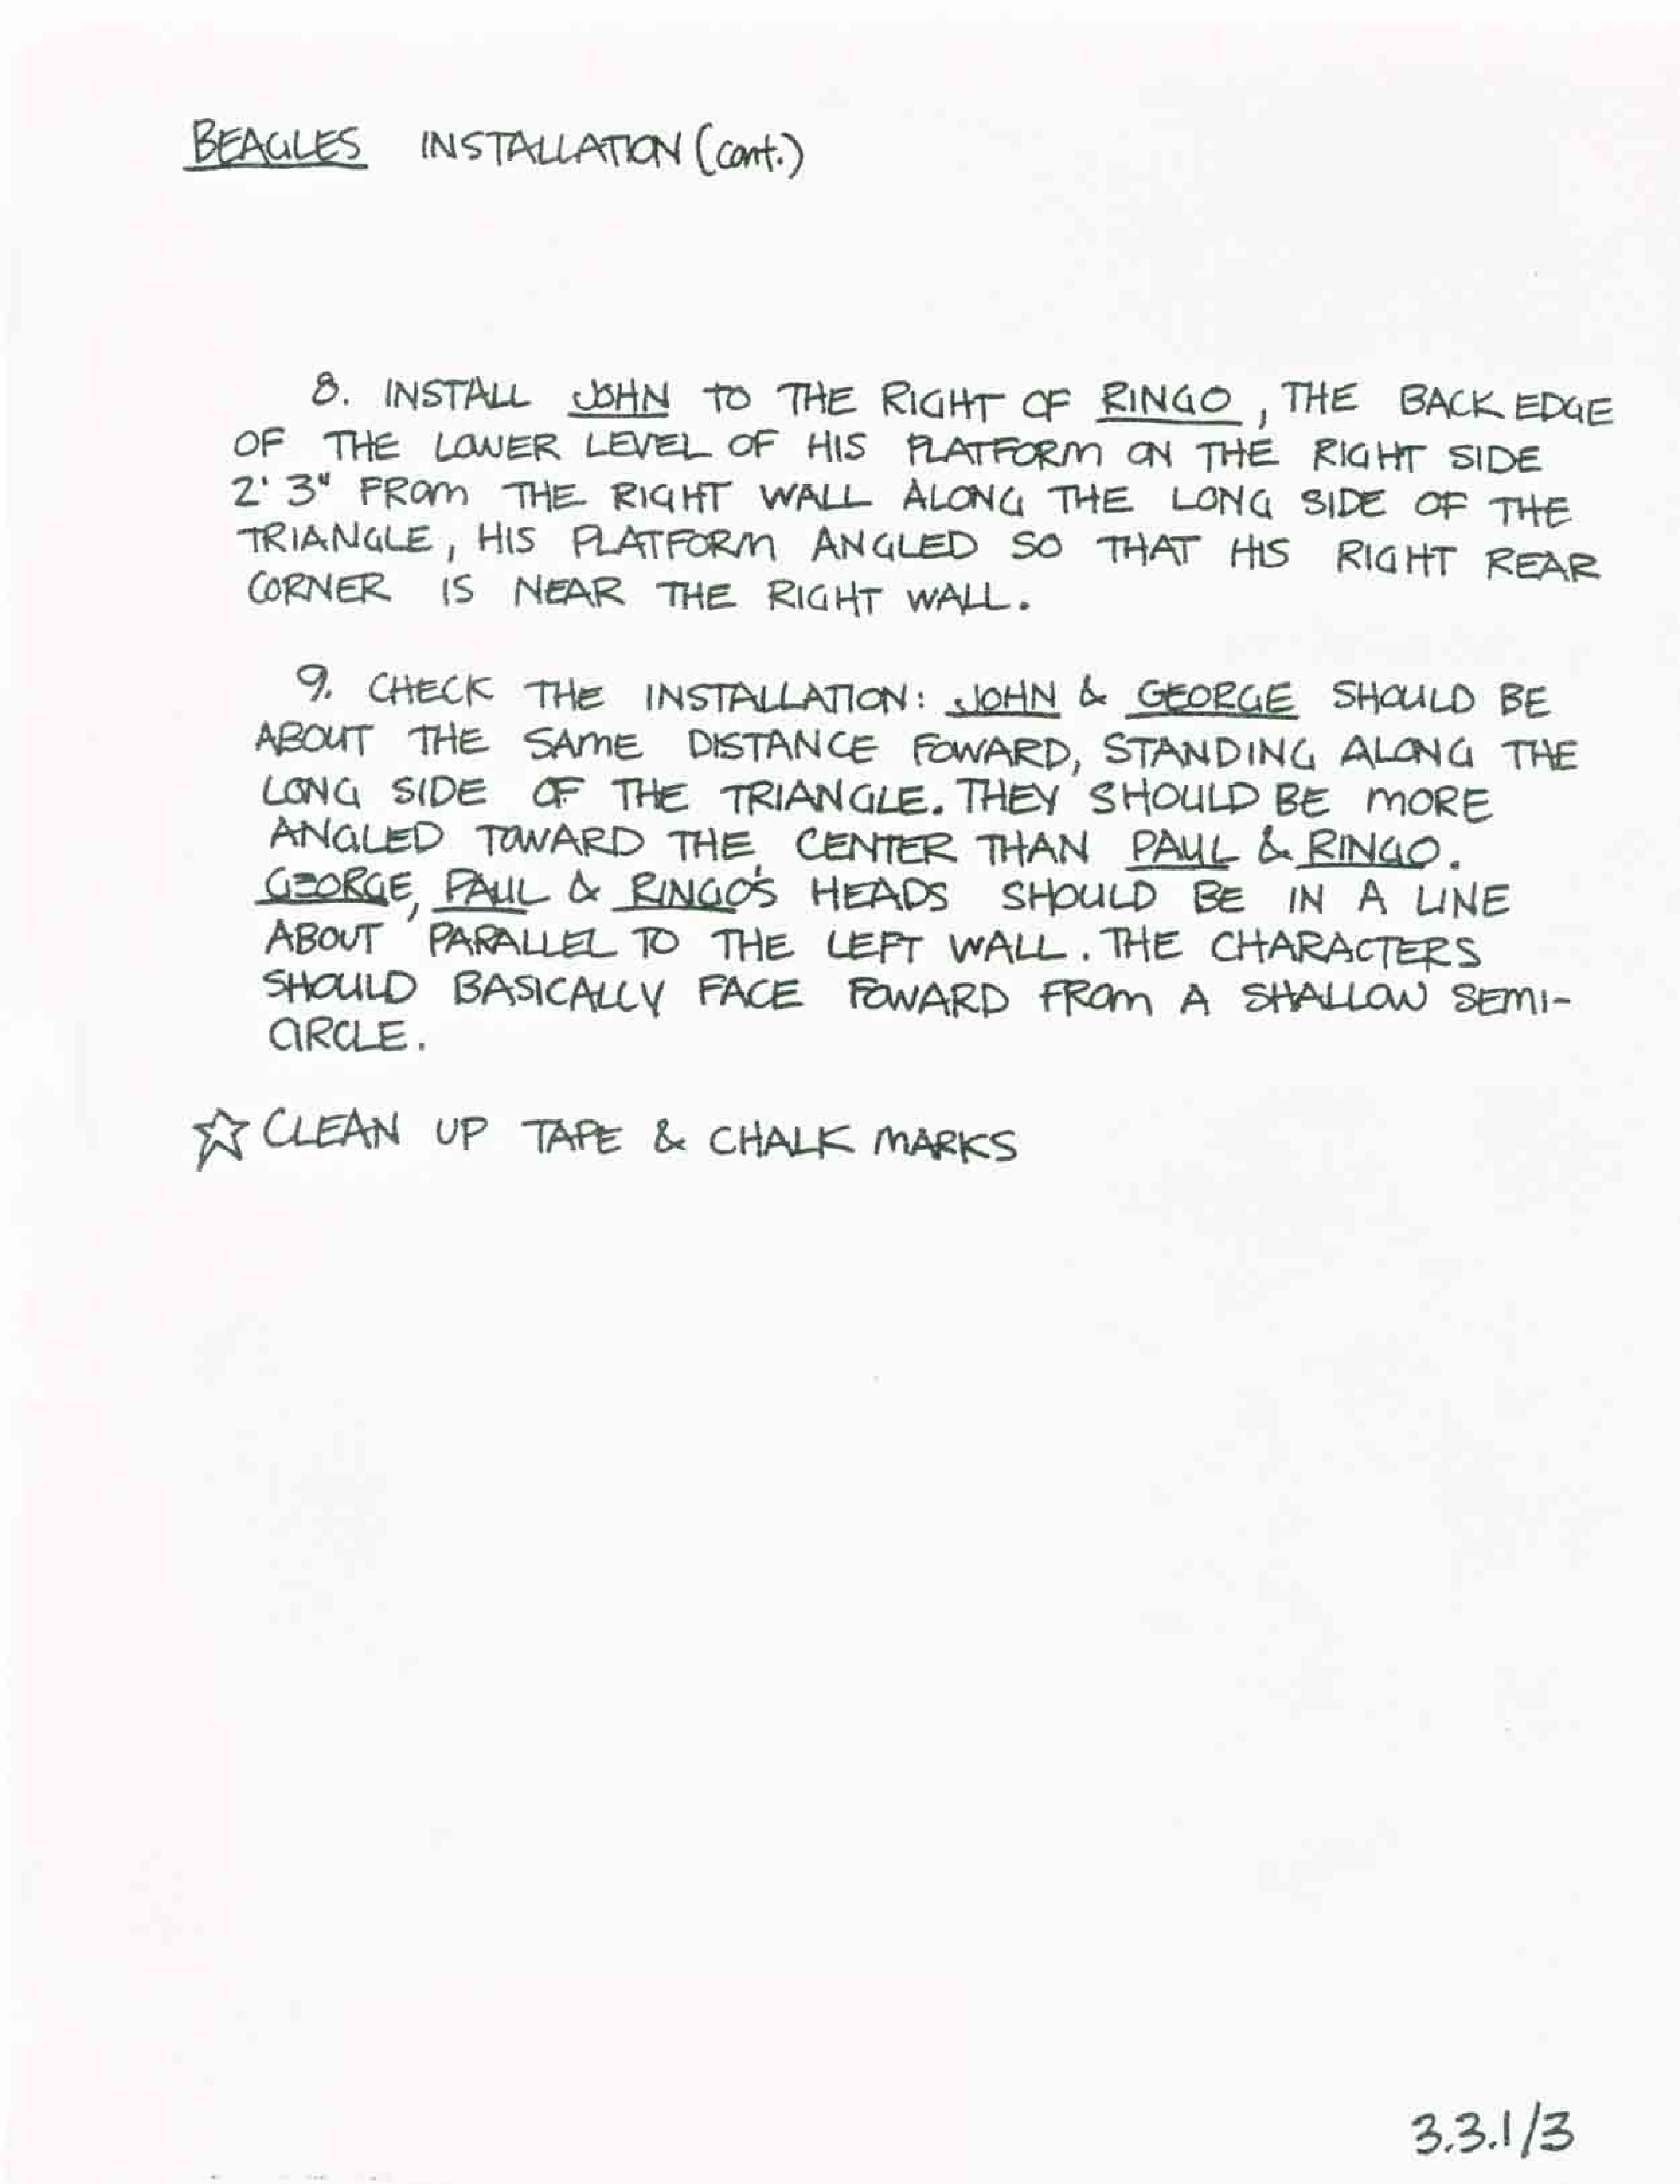 BEAGLES INSTALLATION (cont.)
8. INSTALL JOHN TO THE RIGHT OF RINGO, THE BACK EDGE
OF THE LOWER LEVEL OF HIS PLATFORM ON THE RIGHT SIDE
2' 3" FROM THE RIGHT WALL ALONG THE LONG SIDE OF THE
TRIANGLE, HIS PLATFORM ANGLED SO THAT HIS RIGHT REAR
CORNER IS NEAR THE RIGHT WALL.
9. CHECK THE INSTALLATION: JOHN & GEORGE SHOULD BE
ABOUT THE SAME DISTANCE FOWARD, STANDING ALONG THE
LONG SIDE OF THE TRIANGLE. THEY SHOULD BE MORE
ANGLED TOWARD THE CENTER THAN PAUL & RINGO.
GEORGE, PAUL & RINGO'S HEADS SHOULD BE IN A LINE
ABOUT PARALLEL TO THE LEFT WALL. THE CHARACTERS
SHOULD BASICALLY FACE FOWARD FROM A SHALLOW SEMI-
CIRCLE.
☆ CLEAN UP TAPE & CHALK MARKS
3.3.1/3